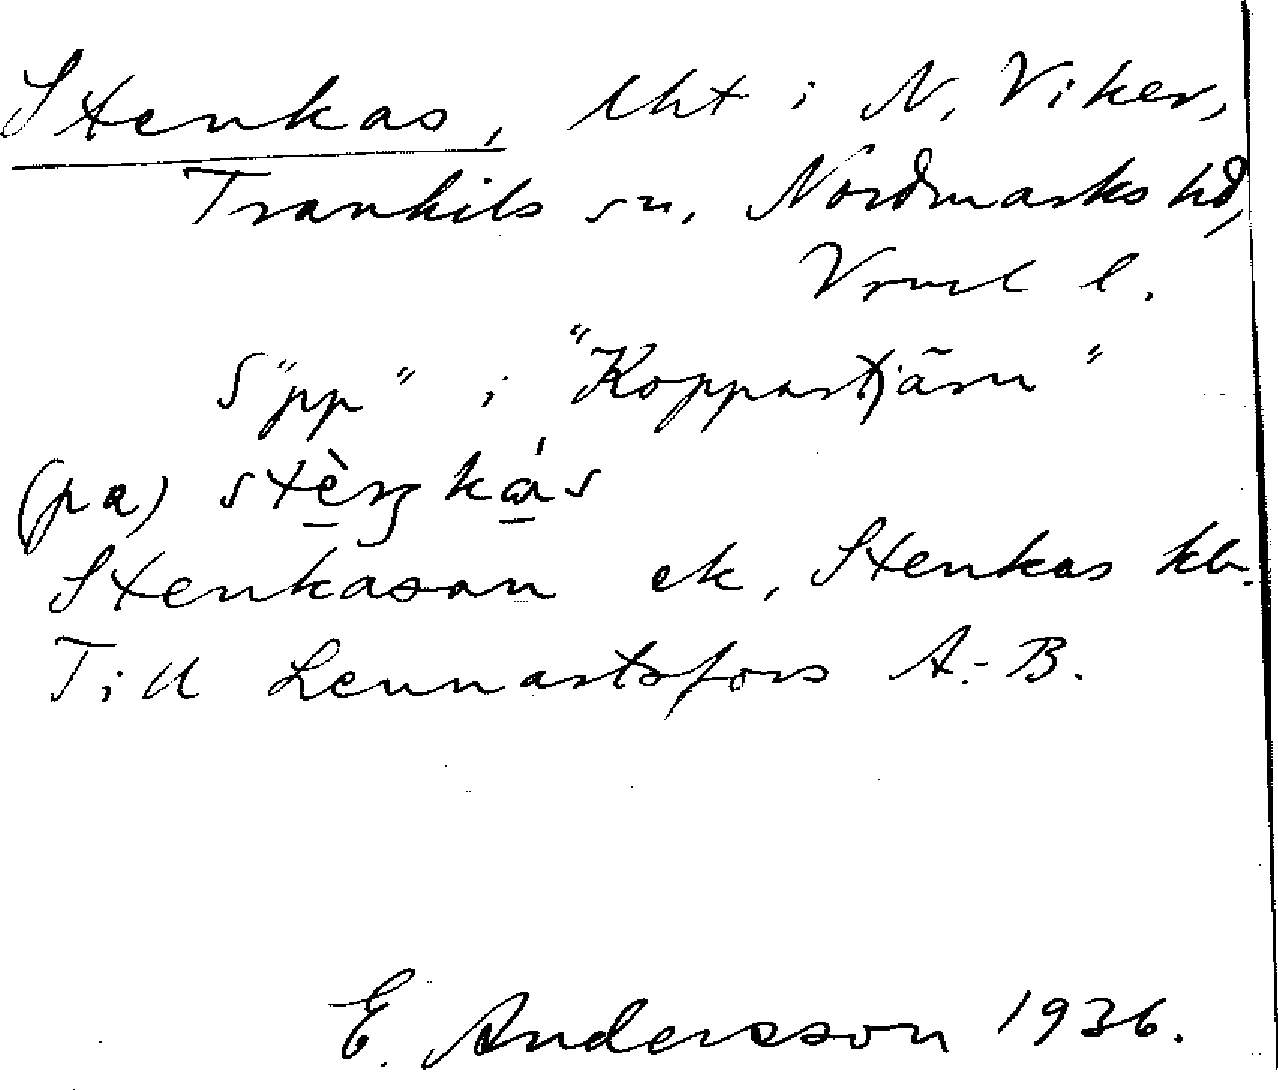 Stenkas, lht i N. Viker,
Trankils sn, Nordmarks hd,
Vrml l.
S "pp" i "Koppartjärn"
(pa) stèŋkás
Stenkasan ek, Stenkas kb.
Till Lennartsfors A.-B.
E. Andersson 1936.